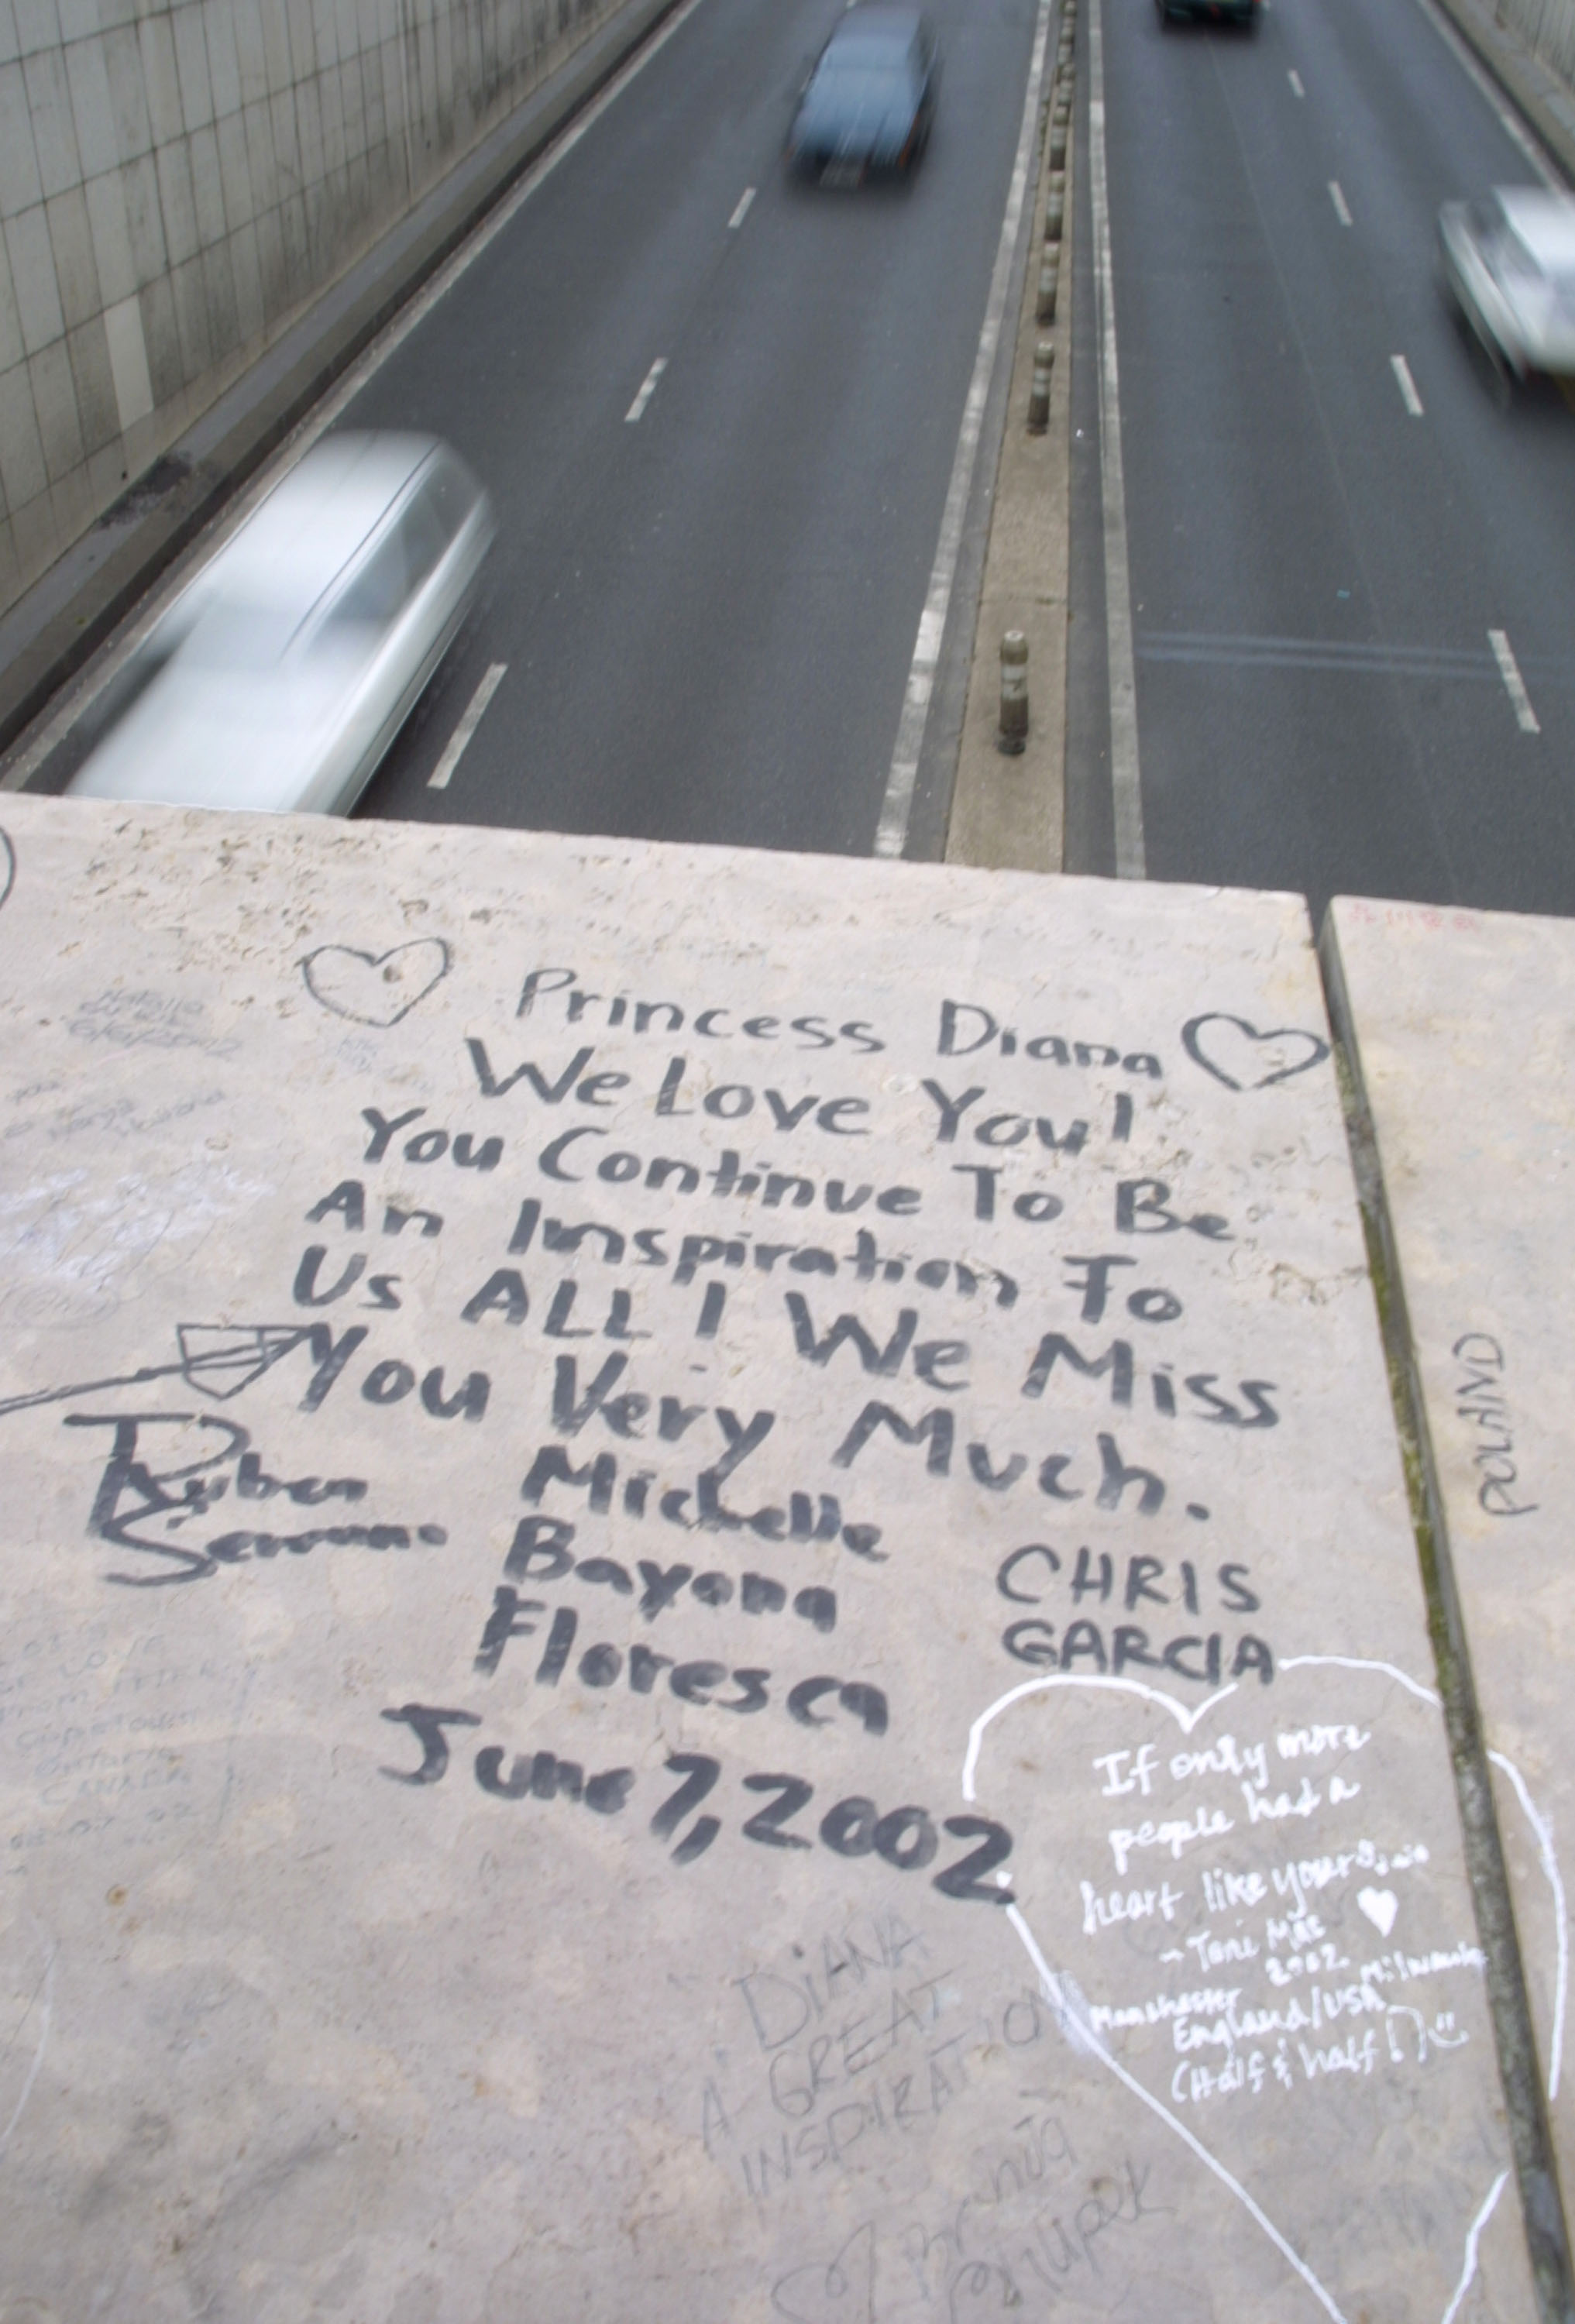 Princess Diana
We Love You!
You Continue To Be
An Inspiration To
Us ALL! We Miss
You Very Much.
Ruben
Serrano
Michelle
Bayona
Floresca
CHRIS
GARCIA
June 7, 2002
POLAND
If only more
people had a
heart like yours...
2002
Manchester Milwaukee
England/USA
(Half & half!)
DIANA
A GREAT
INSPIRATION
CANADA